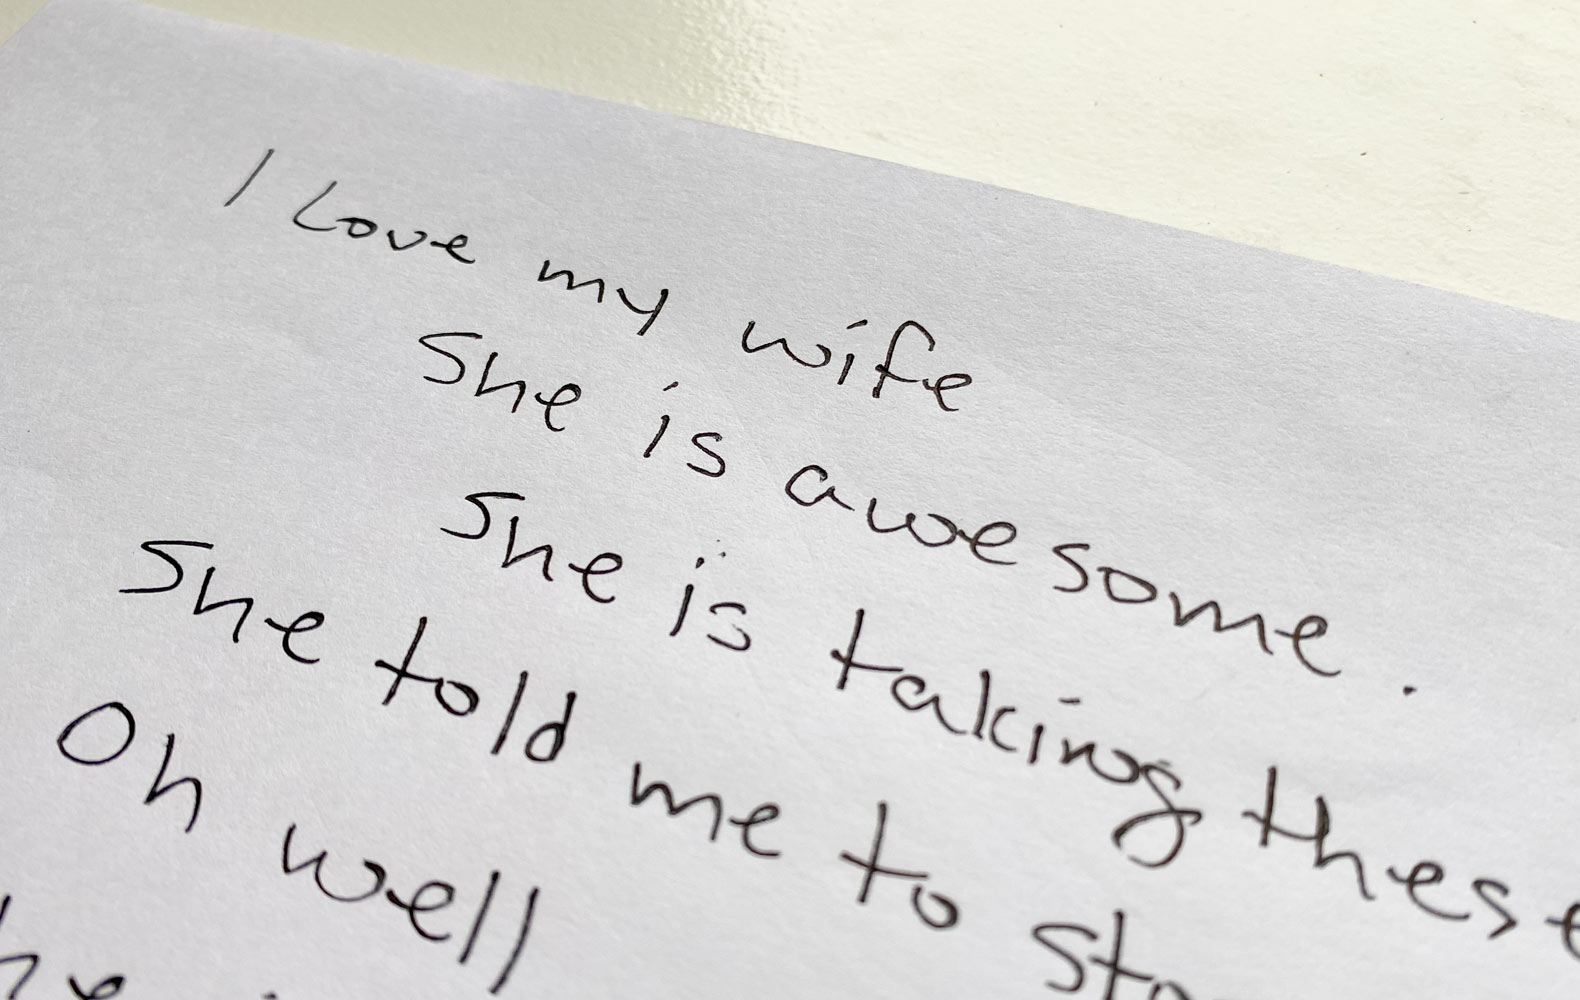 I Love my wife
She is awesome.
She is taking these
She told me to
Oh well